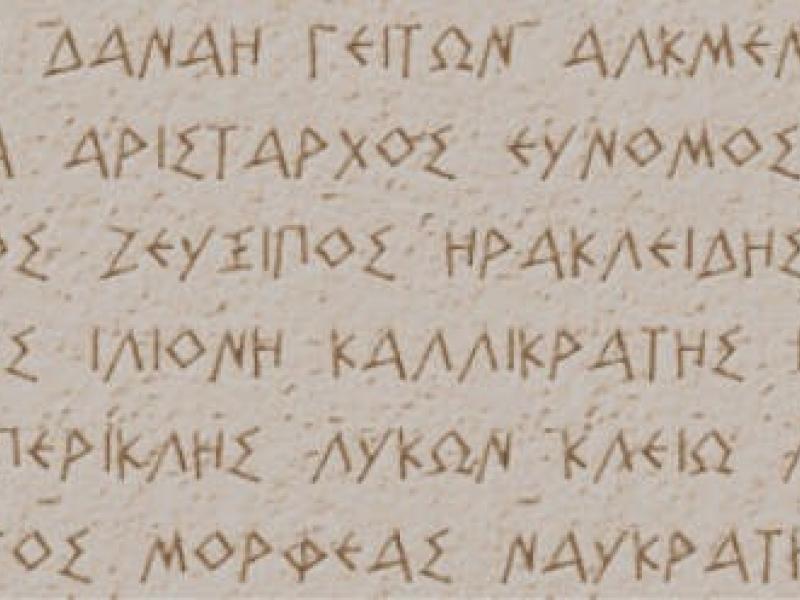 ΔΑΝΑΗ ΓΕΙΤΩΝ ΑΛΚΜΕΝ
Α ΑΡΙΣΤΑΡΧΟΣ ΕΥΝΟΜΟΣ
ΟΣ ΖΕΥΞΙΠΟΣ ΗΡΑΚΛΕΙΔΗΣ
Σ ΙΛΙΟΝΗ ΚΑΛΛΙΚΡΑΤΗΣ
ΠΕΡΙΚΛΗΣ ΛΥΚΩΝ ΚΛΕΙΩ
ΤΟΣ ΜΟΡΦΕΑΣ ΝΑΥΚΡΑΤΗ